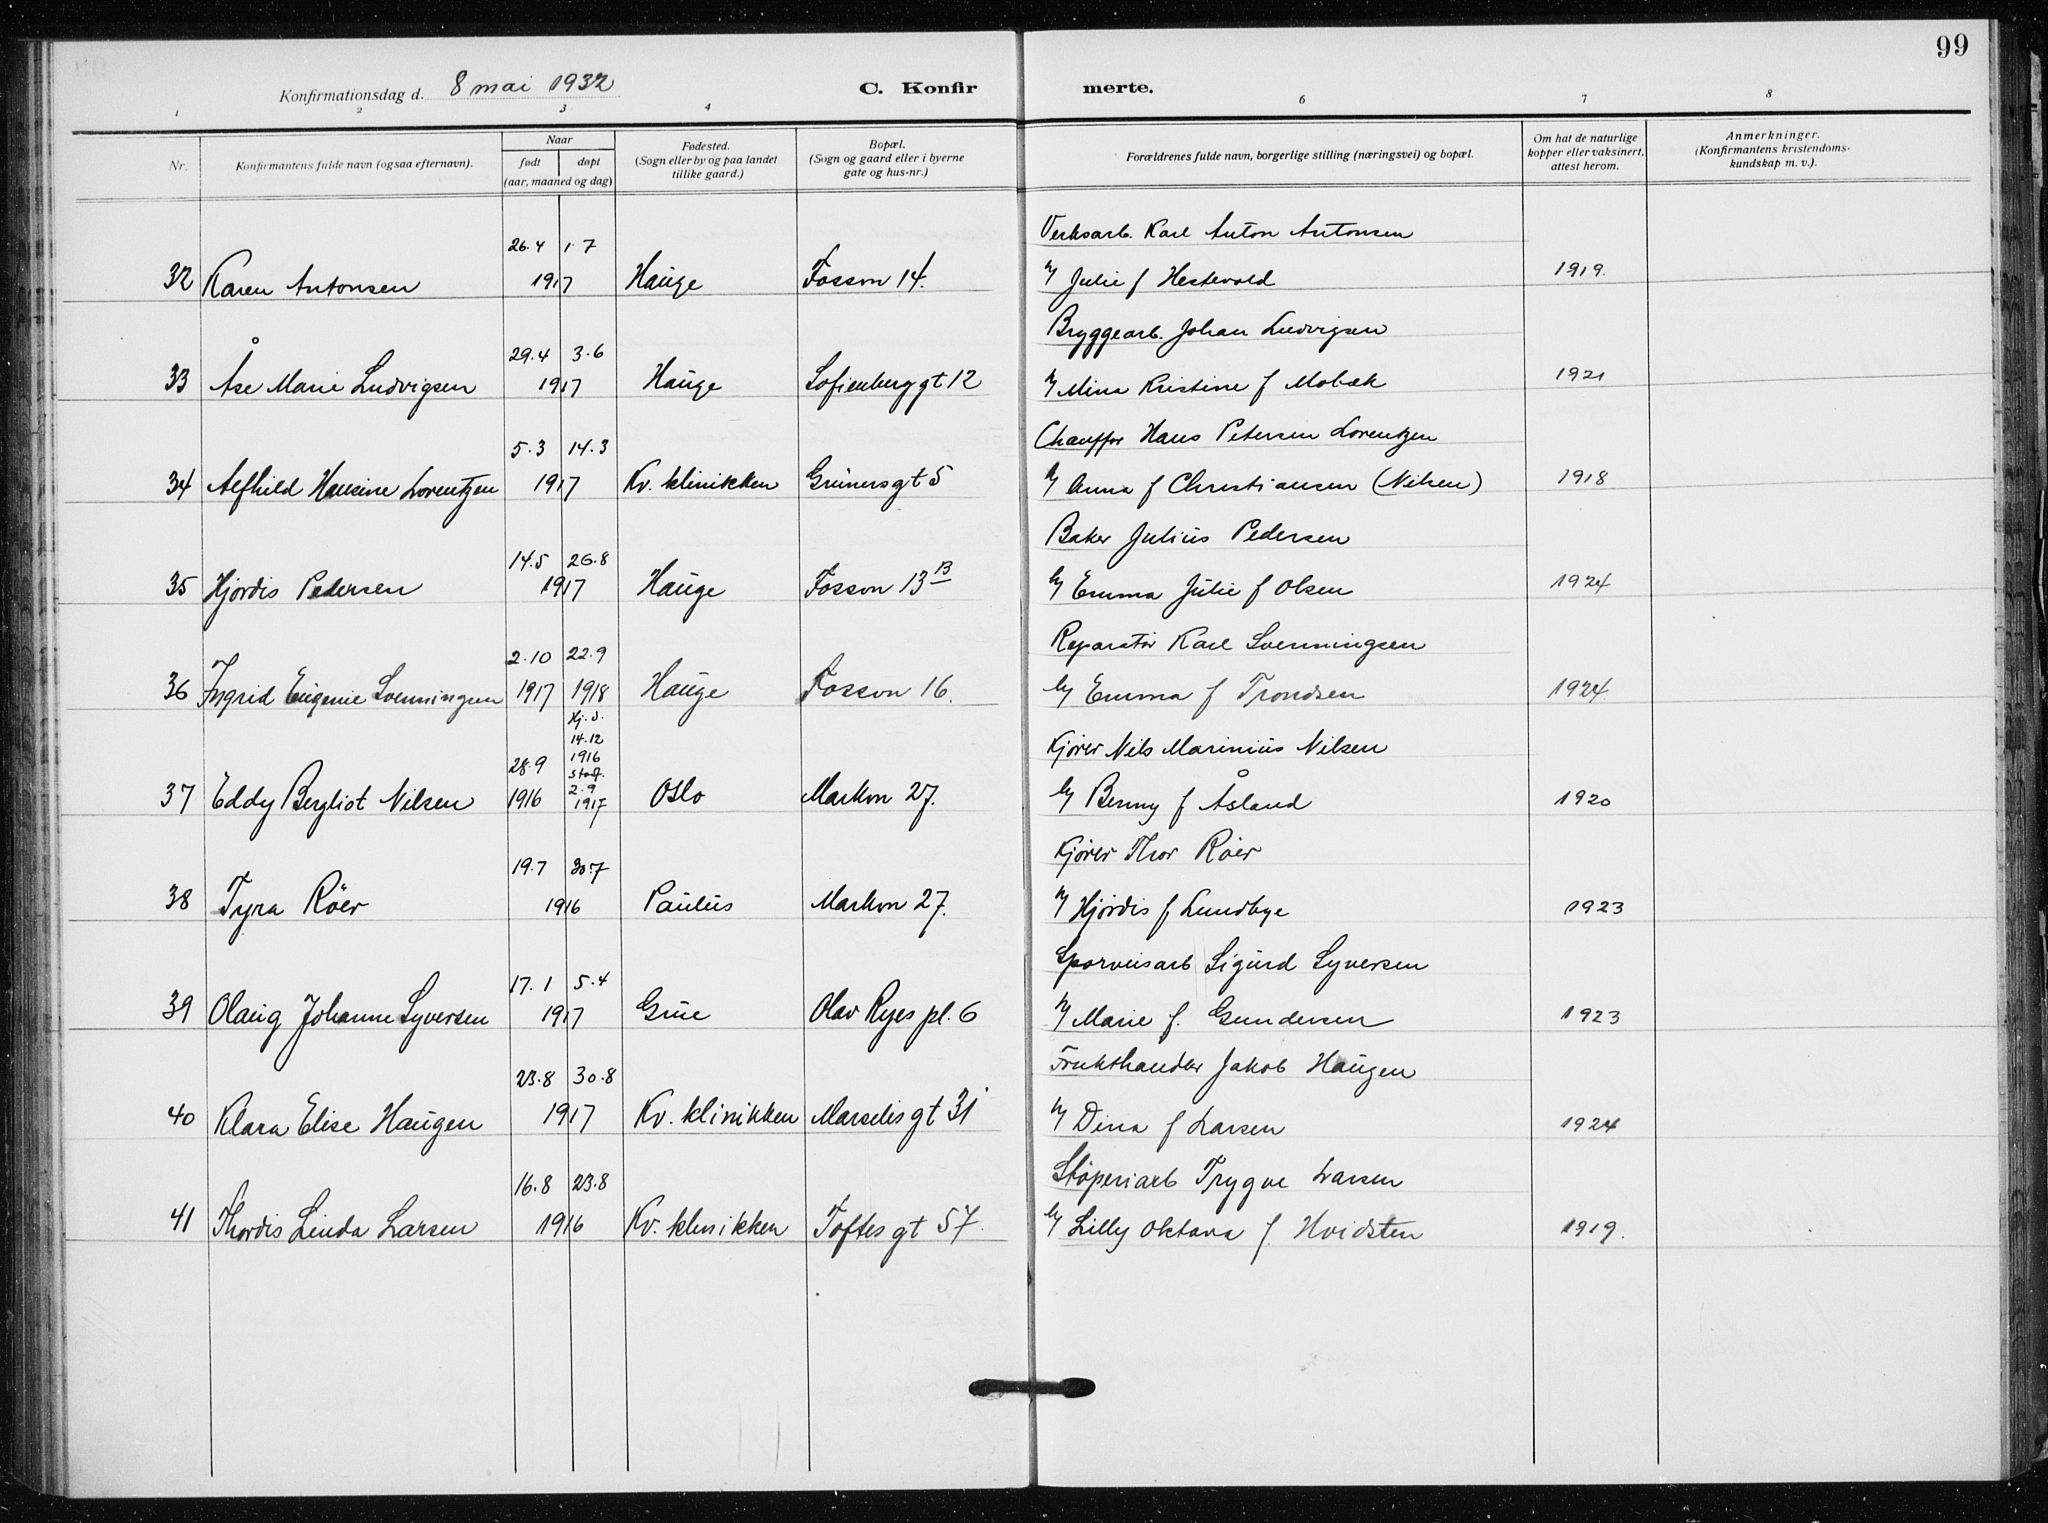 99
Konfirmationsdag d. 8 mai 1932
C. Konfirmerte.
1 2 3 4 6 7 8
Nr.
Konfirmantens fulde navn (ogsaa efternavn).
Naar
født døpt
(aar, maaned og dag)
Fødested.
(Sogn eller by og paa landet
tillike gaard.)
Bopæl.
(Sogn og gaard eller i byerne
gate og hus-nr.)
Forældrenes fulde navn, borgerlige stilling (næringsvei) og bopæl.
Om hat de naturlige
kopper eller vaksinert,
attest herom.
Anmerkninger.
(Konfirmantens kristendoms-
kundskap m. v.).
26.4 1.7 Verksarb. Karl Anton Antonsen
32 Karen Antonsen 1917 Hauge Fosson 14. Julie f Hestevold 1919.
29.4 3.6 Bryggearb. Johan Ludvigsen
33 Åse Marie Ludvigsen 1917 Hauge Sofienberggt 12 Mina Kristine f Mobæk 1921
5.3 14.3 Chauffør Hans Petersen Lorentzen
34 Alfhild Hansine Lorentzen 1917 Kv. klinikken Grünersgt 5 Anna f Christiansen (Nilsen) 1918
14.5 26.8 Baker Julius Pedersen
35 Hjørdis Pedersen 1917 Hauge Fosson 13 B Emma Julie f Olsen 1924
2.10 22.9 Reparatør Karl Svenningsen
36 Ingrid Eugenie Svenningsen 1917 1918 Hauge Fosson 16. Emma f Trondsen 1924.
Hj. d.
14.12
1916
28.9 stadf. Kjører Nils Marinius Nilsen
2.9
37 Eddy Bergliot Nilsen 1916 1917 Oslo Markvn 27. Benny f Åsland 1920
19.7 30.7 Kjører Thor Røer
38 Tyra Röer 1916 Paulus Markvn 27. Hjørdis f Lundbye 1923
17.1 5.4 Sporveisarb Sigurd Syversen
39 Olaug Johanne Syversen 1917 Grue Olav Ryes pl. 6 Marie f. Gundersen 1923
23.8 30.8 Frukthandler Jakob Haugen
40 Klara Elise Haugen 1917 Kv. klinikken Marselisgt 31 Dina f Larsen 1924
16.8 23.8 Støperiarb Trygve Larsen
41 Thordis Linda Larsen 1916 Kv. klinikken Toftesgt 57. Lilly Oktava f. Hvidsten 1919.